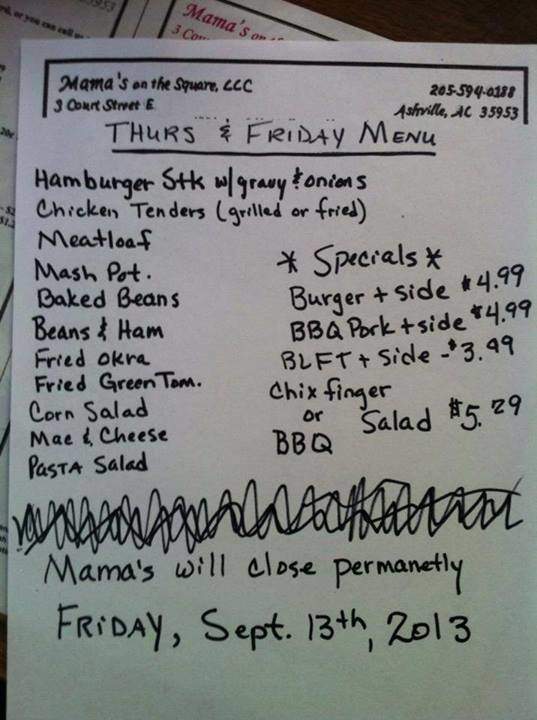 Mama's on
3 Cou
35953
rd, or you can call
Mama's on the Square, LLC
3 Court Street E
205-594-0188
Ashville, AL 35953
THURS & FRIDAY MENU
Hamburger Stk w/gravy & onions
Chicken Tenders (grilled or fried)
Meatloaf
Mash Pot.
Baked Beans
Beans & Ham
Fried Okra
Fried Green Tom.
Corn Salad
Mac & Cheese
PASTA Salad
* Specials *
Burger + side $4.99
BBQ Pork + side $4.99
BLFT + Side - $3.99
Chix finger
or Salad $5.29
BBQ
Mama's will close permanetly
FRIDAY, Sept. 13th, 2013